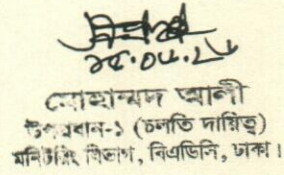 ১৫.০৪.২৮
মোহাম্মদ আলী
উপপ্রধান-১ (চলতি দায়িত্ব)
মনিটরিং বিভাগ, বিএডিসি, ঢাকা।